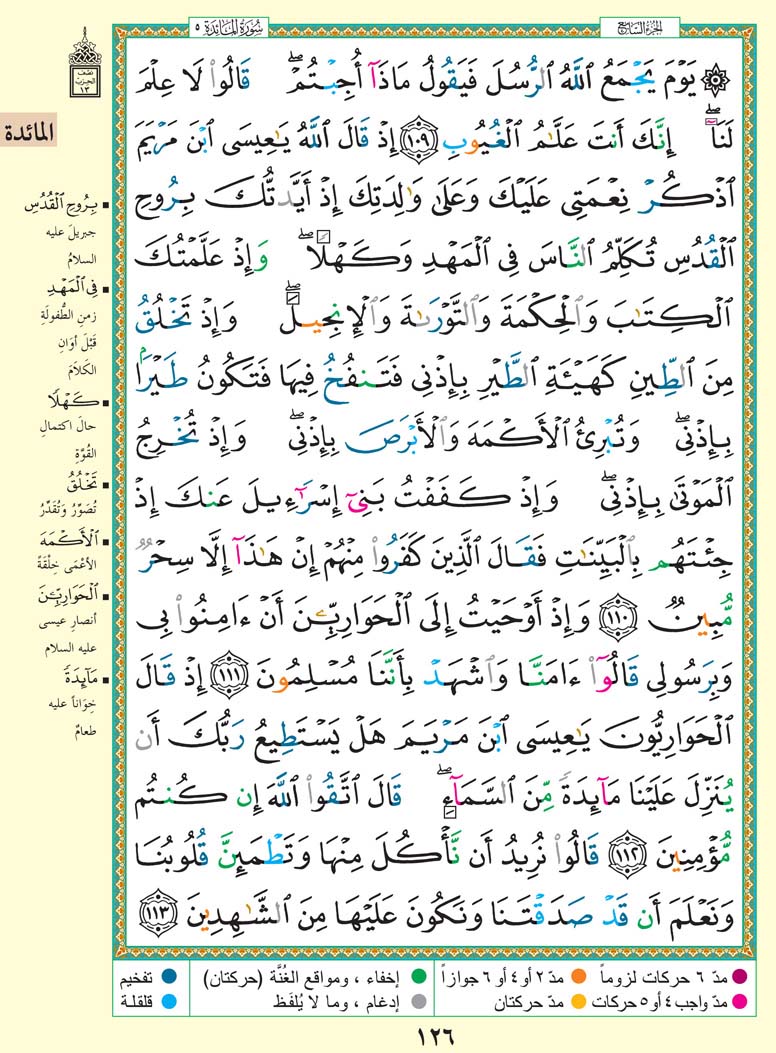 سُورَةُ المَائدَة ٥
الجُزءُ السَّابِع
نصف
الحزب
١٣
المائدة
۞ يَوْمَ يَجْمَعُ ٱللَّهُ ٱلرُّسُلَ فَيَقُولُ مَاذَآ أُجِبْتُمْۖ قَالُوا۟ لَا عِلْمَ
لَنَآۖ إِنَّكَ أَنتَ عَلَّـٰمُ ٱلْغُيُوبِ ١٠٩ إِذْ قَالَ ٱللَّهُ يَـٰعِيسَى ٱبْنَ مَرْيَمَ
ٱذْكُرْ نِعْمَتِى عَلَيْكَ وَعَلَىٰ وَٰلِدَتِكَ إِذْ أَيَّدتُّكَ بِرُوحِ
ٱلْقُدُسِ تُكَلِّمُ ٱلنَّاسَ فِى ٱلْمَهْدِ وَكَهْلًاۖ وَإِذْ عَلَّمْتُكَ
ٱلْكِتَـٰبَ وَٱلْحِكْمَةَ وَٱلتَّوْرَىٰةَ وَٱلْإِنجِيلَۖ وَإِذْ تَخْلُقُ
مِنَ ٱلطِّينِ كَهَيْـَٔةِ ٱلطَّيْرِ بِإِذْنِى فَتَنفُخُ فِيهَا فَتَكُونُ طَيْرًۢا
بِإِذْنِىۖ وَتُبْرِئُ ٱلْأَكْمَهَ وَٱلْأَبْرَصَ بِإِذْنِىۖ وَإِذْ تُخْرِجُ
ٱلْمَوْتَىٰ بِإِذْنِىۖ وَإِذْ كَفَفْتُ بَنِىٓ إِسْرَٰٓءِيلَ عَنكَ إِذْ
جِئْتَهُم بِٱلْبَيِّنَـٰتِ فَقَالَ ٱلَّذِينَ كَفَرُوا۟ مِنْهُمْ إِنْ هَـٰذَآ إِلَّا سِحْرٌ
مُّبِينٌ ١١٠ وَإِذْ أَوْحَيْتُ إِلَى ٱلْحَوَارِيِّـۧنَ أَنْ ءَامِنُوا۟ بِى
وَبِرَسُولِى قَالُوٓا۟ ءَامَنَّا وَٱشْهَدْ بِأَنَّنَا مُسْلِمُونَ ١١١ إِذْ قَالَ
ٱلْحَوَارِيُّونَ يَـٰعِيسَى ٱبْنَ مَرْيَمَ هَلْ يَسْتَطِيعُ رَبُّكَ أَن
يُنَزِّلَ عَلَيْنَا مَآئِدَةً مِّنَ ٱلسَّمَآءِۖ قَالَ ٱتَّقُوا۟ ٱللَّهَ إِن كُنتُم
مُّؤْمِنِينَ ١١٢ قَالُوا۟ نُرِيدُ أَن نَّأْكُلَ مِنْهَا وَتَطْمَئِنَّ قُلُوبُنَا
وَنَعْلَمَ أَن قَدْ صَدَقْتَنَا وَنَكُونَ عَلَيْهَا مِنَ ٱلشَّـٰهِدِينَ ١١٣
▪ بِرُوحِ ٱلْقُدُسِ
جبريلَ عليه
السلامُ
▪ فِى ٱلْمَهْدِ
زمنِ الطُّفولَةِ
قَبْلَ أوَانِ
الكَلَامِ
▪ كَهْلًا
حالَ اكتمالِ
القُوَّةِ
▪ تَخْلُقُ
تُصَوِّرُ وَتُقَدِّرُ
▪ ٱلْأَكْمَهَ
الأعْمَى خِلْقَةً
▪ ٱلْحَوَارِيِّـۧنَ
أنصارِ عيسى
عليه السلام
▪ مَآئِدَةً
خِوَاناً عليه
طعامٌ
● مدّ ٦ حركات لزوماً ● مدّ ٢ أو ٤ أو ٦ جوازاً
● مدّ واجب ٤ أو ٥ حركات ● مدّ حركتان
● إخفاء ، ومواقع الغُنَّة (حركتان)
● إدغام ، وما لا يُلفَظ
● تفخيم
● قلقلة
١٢٦